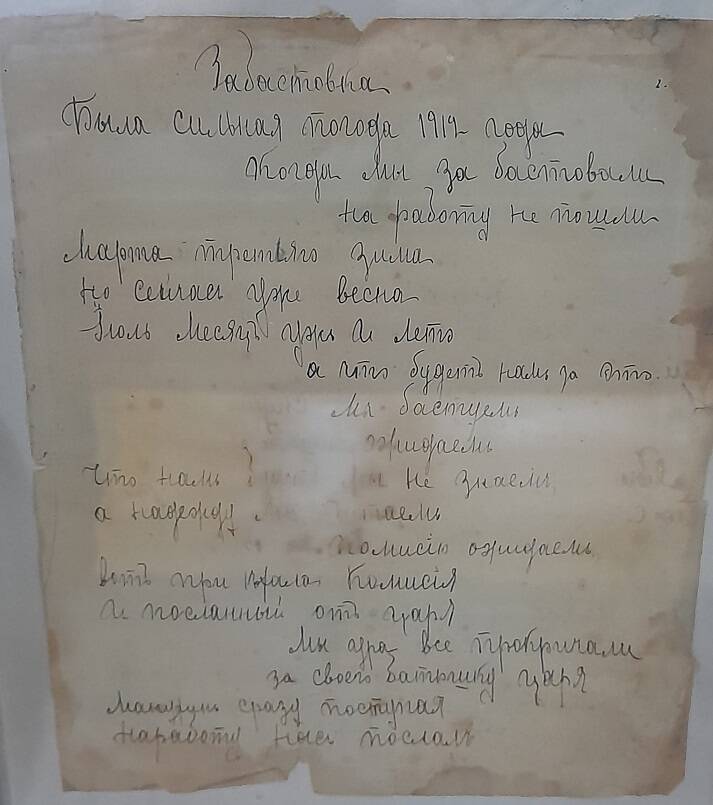 Забастовка
2.
Была сильная погода 1914 года
Когда мы за бастовали
на работу не пошли
Марта третьяго зима
Но сейчас уже весна
Июль месяцъ ужъ и лето
а что будетъ намъ за это.
Мы бастуемъ
ожидаемъ
Что намъ не знаемъ
а надежду
комисію ожидаемъ
Вотъ при ехала Комисія
И посланный отъ царя
Мы ура все прокричали
за своего батюшку царя
сразу поступая
Наработу насъ